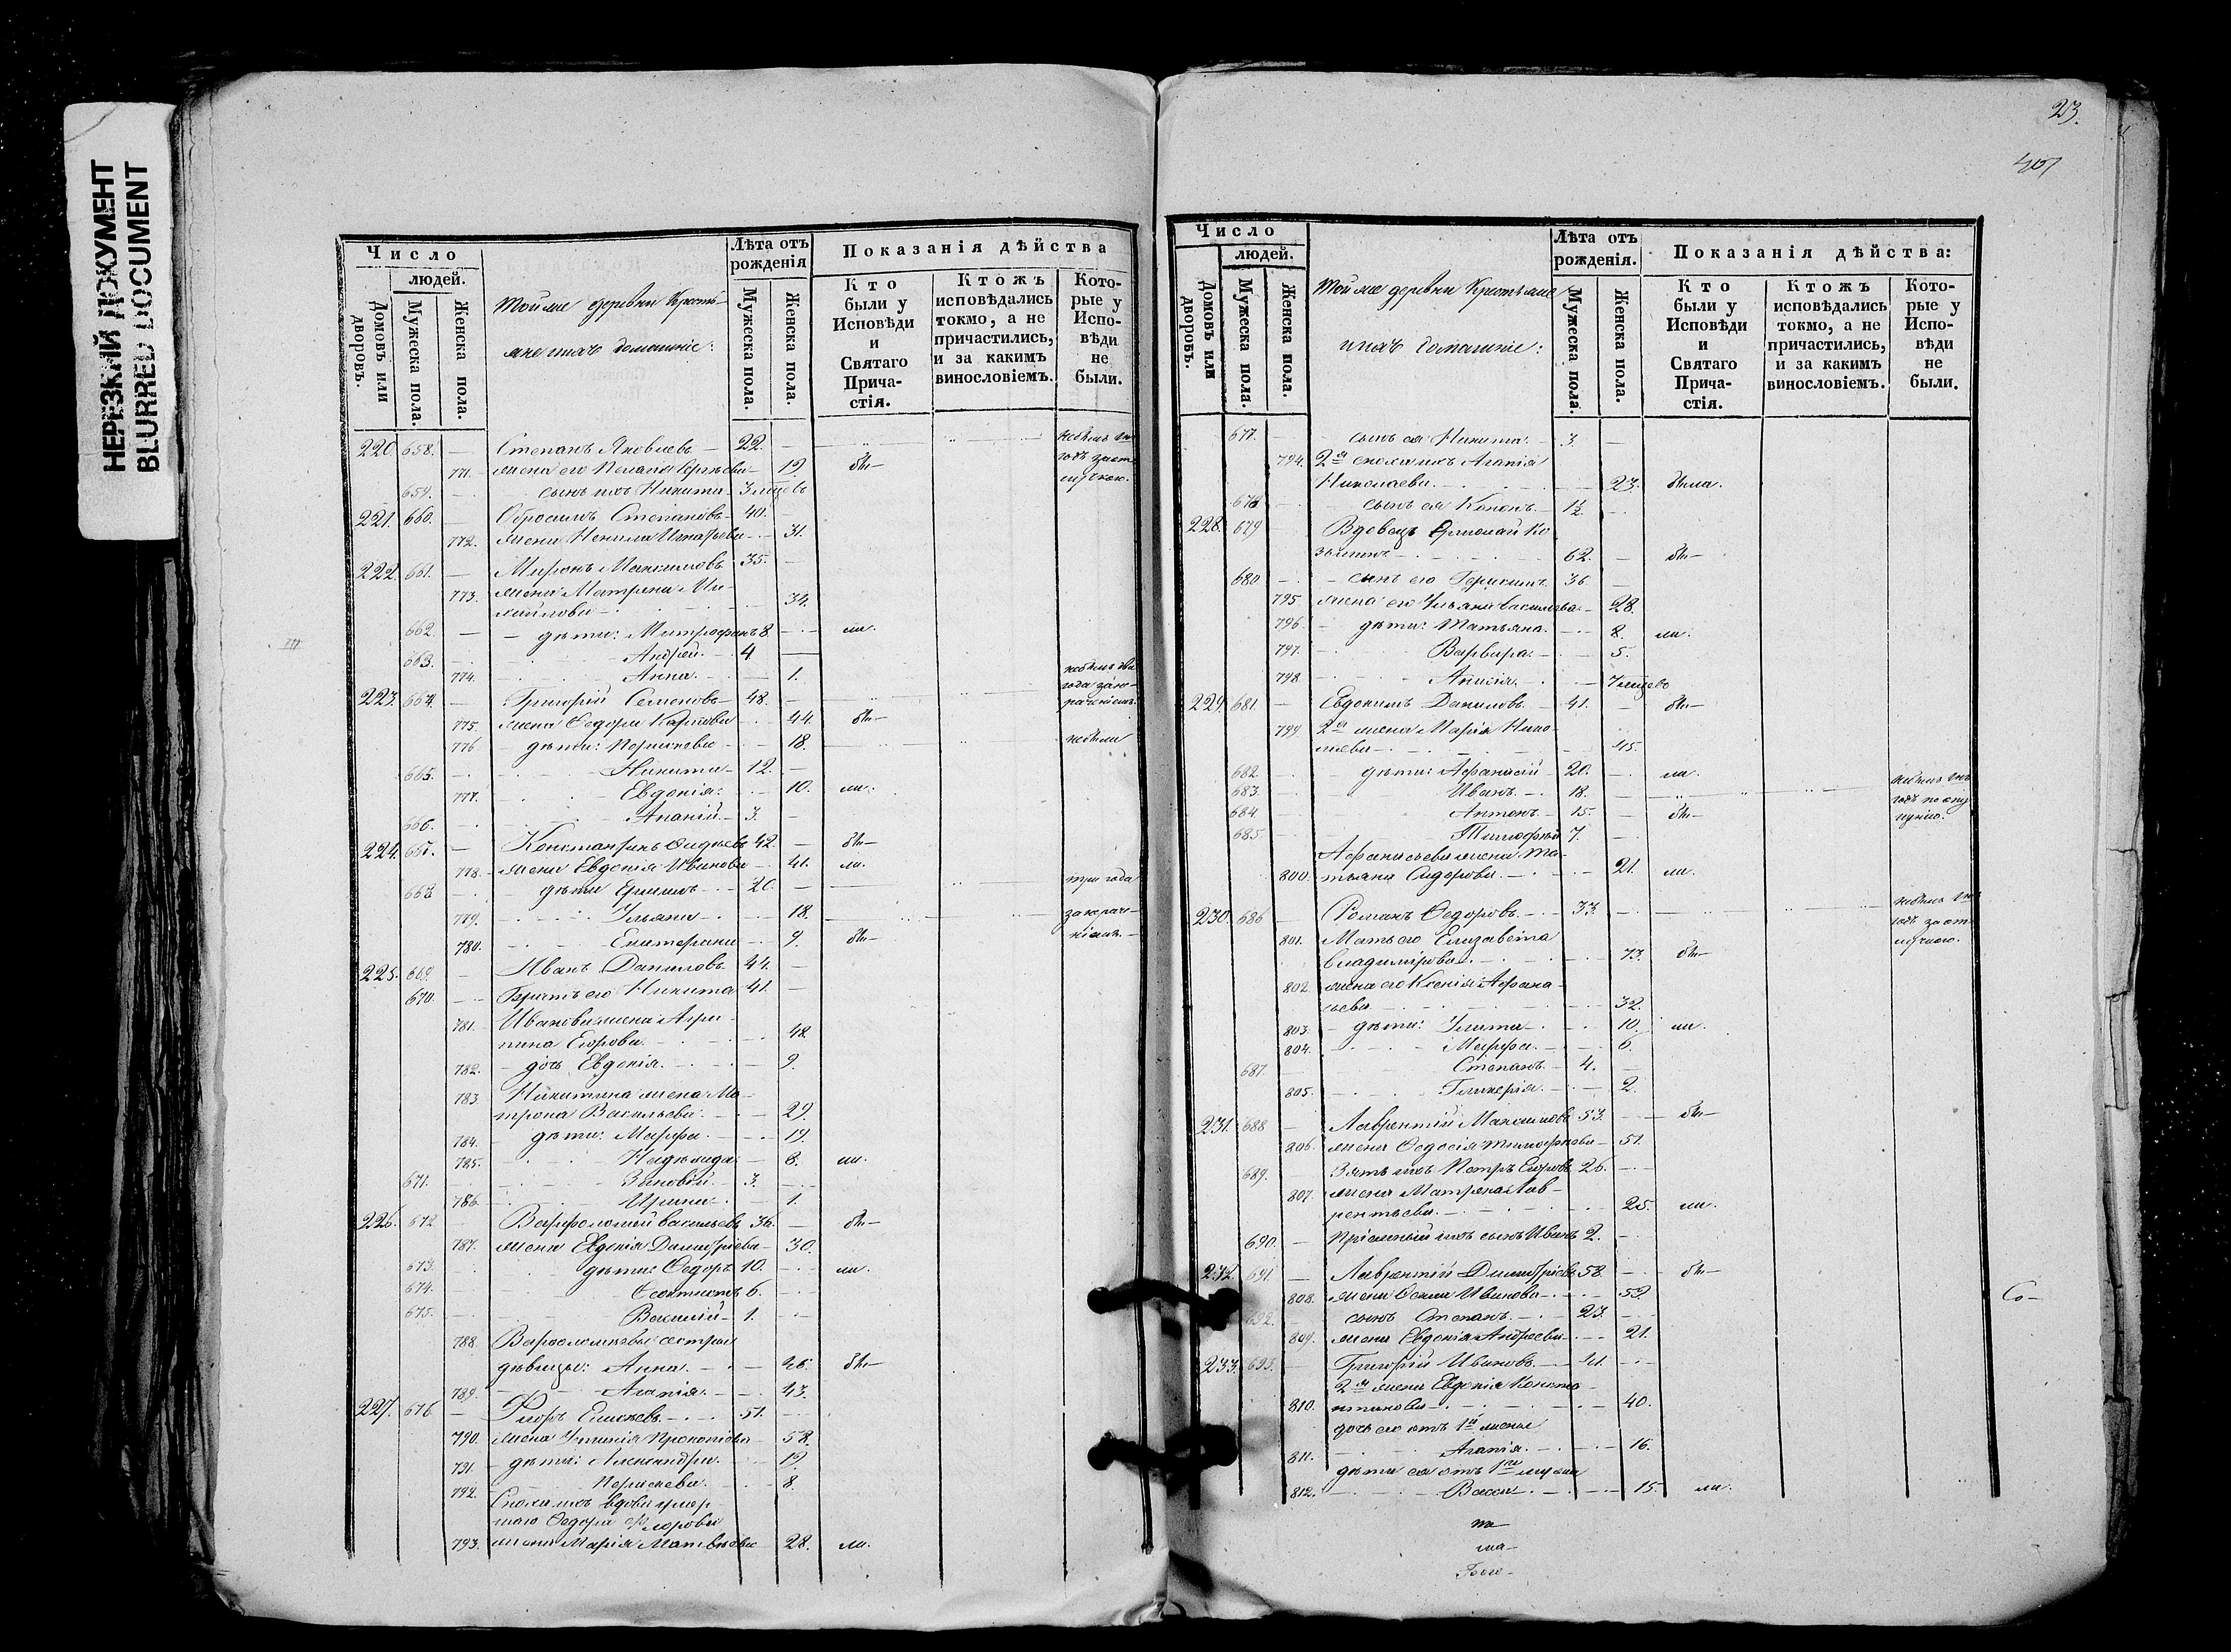 НЕРЕЗКИЙ ДОКУМЕНТ
BLURRED DOCUMENT
Число
людей.
Домовъ или дворовъ.
Мужеска пола.
Женска пола.
Тойже деревни Кресть-
яне ихъ домашніе:
Лѣта отъ рожденія
Мужеска пола.
Женска пола.
Показанія дѣйства
Кто были у Исповѣди и Святаго Прича-стія.
Ктожъ исповѣдались токмо, а не причастились, и за какимъ винословіемъ.
Кото-рые у Испо-вѣди не были.
220. 658. — Степанъ Яковлевъ — 22. —
771. жена его Пелагія Сергѣева — 19 бы—
659. — сынъ ихъ Никита — 3 мѣсецъ
221. 660. — Обросимъ Степановъ — 40. —
772. жена Ненила Игнатьева — 31.
222. 661. — Миронъ Максимовъ 35. —
773. жена Матрена Ми-
хайлова — 34.
662. — дѣти: Митрофанъ 8. — ли.
663. — Андрей. — 4
774. — Анна. — 1.
223. 664. — Григорій Семеновъ 48. —
775. жена Ѳедора Карпова — 44. бы—
776 — дѣти: — 18. небыли
665. — Никита — 12. —
777. — Евдокія: — 10. ли.
666. — Ананій — 3. —
224. 667. — Константинъ 42. — бы—
778. жена Евдокія Иванова — 41. ли.
668 — дѣти — 20. — три года
779. — Ульяна — 18. за
780. — Екатерина — 9. бы—
225. 669 — Иванъ Даниловъ 44. —
670. — Братъ его Никита 41. —
781. Иванова жена Агри-
пина Егорова. — 48.
782. — дочь Евдокія. — 9.
783. Никитина жена Ма-
трона Васильева. — 29.
784. — дѣти: Марфа. — 19.
785. — 8. ли.
671. — Зиновій. — 3. —
786. — Ирина — 1.
226. 672 — Варфоломей Васильевъ 36. — бы—
787. жена Евдокія Димитріева — 30.
673. — дѣти: Ѳедоръ 10. — ли.
674. — Ѳеоктистъ 6. —
675. — Василій — 1. —
788. сестры
дѣвицы: Анна. — 46. бы—
789. — Агапія. — 43.
227. 676 — Флоръ — 51. —
790. жена Устинія Прокопіева — 58.
791. — дѣти: Александра. — 19.
792. — Парасева. — 8.
Сноха ихъ вдова умер-
шаго Ѳедора Флорова
793. жена Марія Матвѣева 28. ли.
23.
407
Число
людей.
Домовъ или дворовъ.
Мужеска пола.
Женска пола.
Тойже деревни Крестьяне
ихъ домашніе:
Лѣта отъ рожденія.
Мужеска пола.
Женска пола.
Показанія дѣйства:
Кто были у Исповѣди и Святаго Прича-стія.
Ктожъ исповѣдались токмо, а не причастились, и за какимъ винословіемъ.
Кото-рые у Испо-вѣди не были.
677. — сынъ ея Никита — 3 —
794. 2я сноха ихъ Агапія
Николаева. — 23. была.
678 — сынъ ея Кононъ. — 1½ —
228. 679 Вдовецъ Ермолай Ко
зьминъ — 62. — бы—
680 — сынъ его Герасимъ 36 —
795 жена его Ульяна Васильева — 28.
796. — дѣти: Татьяна. — 8. ли.
797. — Варвара. — 5.
798. — Анисія. — 7 мѣсецъ
229. 681 — Евдокимъ Даниловъ — 41. — бы—
799 2я жена Марія Нико-
лаева — 45.
682. — дѣти: Афанасій — 20. — ли.
683. — Иванъ. — 18. —
684 — Антонъ. — 15. — бы—
685 — Тимофѣй 7. —
Афанасьева жена Та-
800. тьяна Сидорова. — 21. ли.
230. 686 — Романъ Ѳедоровъ. — 33. —
801. Мать его Елизавета
Владимірова. — 73. бы—
802. жена его Ксенія Афана-
сьева — 32.
803. — дѣти: Улита — 10. ли.
804. — Марфа. — 6.
687. — Степанъ. — 4. —
805. — Гликерія. — 2.
231. 688 — Лаврентій Максимовъ 53. — бы—
806. жена Ѳедосія Тимофѣева — 51.
689. Зять ихъ Петръ Егоровъ 26. —
807. жена Матрена Лав-
рентьева. — 25. ли.
690. — Пріемный ихъ сынъ Иванъ 2. —
232. 691. — Лаврентій Димитріевъ 58. — бы—
808. жена Иванова — 59.
692. — сынъ Степанъ. — 23. —
809. жена Евдокія Андреева — 21.
233. 693. — Григорій Ивановъ — 41. —
2я жена Евдокія Конста-
810. нтинова — 40.
дочь его отъ 1й жены
811. — Агапія. — 16.
дѣти ея отъ 1го мужа
812. — Васса — 15. ли.
Со—